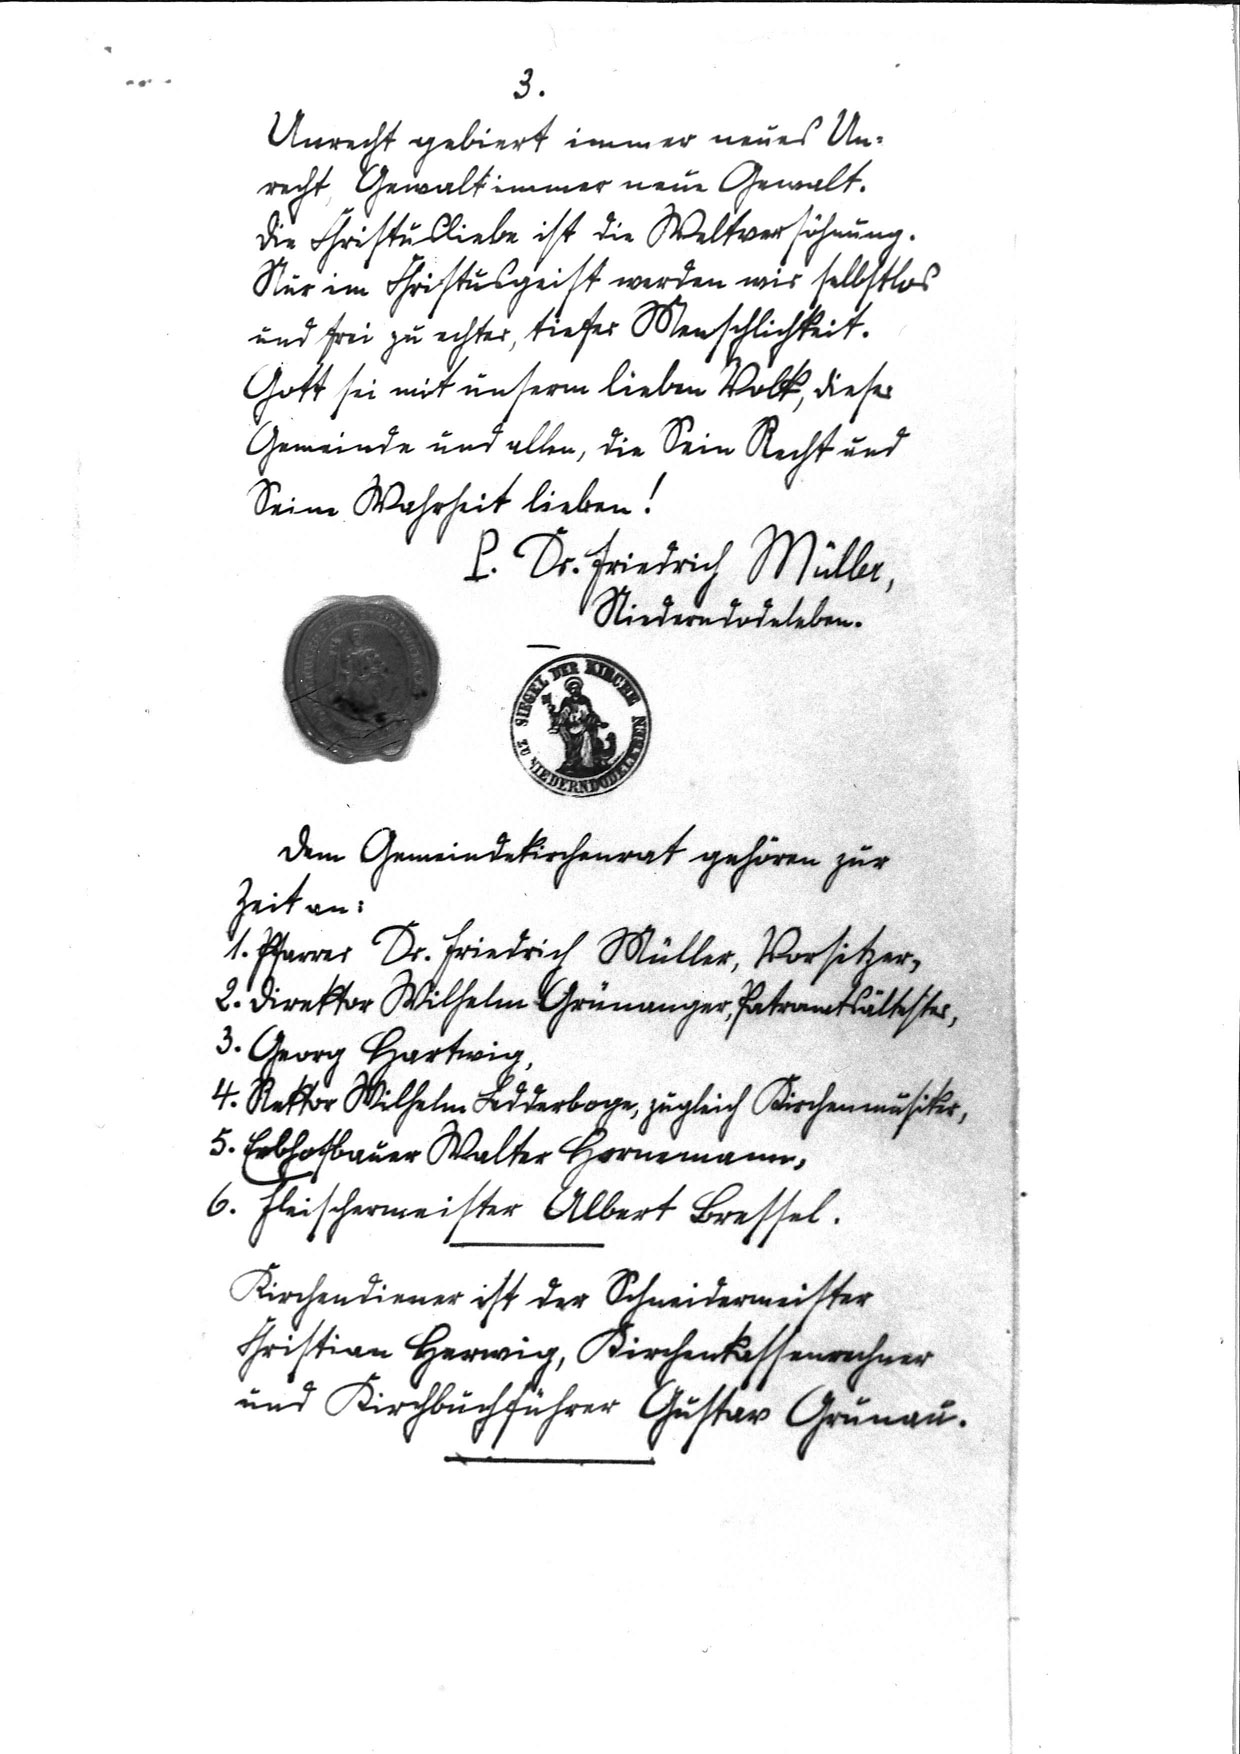 3.
Unrecht gebiert immer neues Un-
recht, Gewalt immer neue Gewalt.
Die Christusliebe ist die Weltversöhnung.
Nur im Christusgeist werden wir selbstlos
und frei zu echter, tiefer Menschlichkeit.
Gott sei mit unserm lieben Volk, dieser
Gemeinde und allen, die Sein Recht und
Seine Wahrheit lieben!
P. Dr. Friedrich Müller,
Niederndodeleben.
SIEGEL DER KIRCHE ZU NIEDERNDODELEBEN
Dem Gemeindekirchenrat gehören zur
Zeit an:
1. Pfarrer Dr. Friedrich Müller, Vorsitzer,
2. Direktor Wilhelm Grünanger, Patronatsältester,
3. Georg Hartwig,
4. Rektor Wilhelm Ledderboge, zugleich Kirchenmusiker,
5. Erbhofbauer Walter Hornemann,
6. Fleischermeister Albert Bressel.
Kirchendiener ist der Schneidermeister
Christian Herwig, Kirchenkassenrechner
und Kirchbuchführer Gustav Grunau.